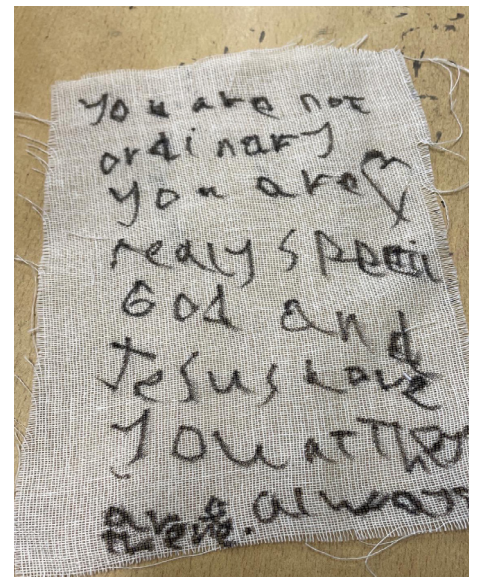 you are not
ordinary
you are
realy special
God and
Jesus Love
you at They
are always
there.